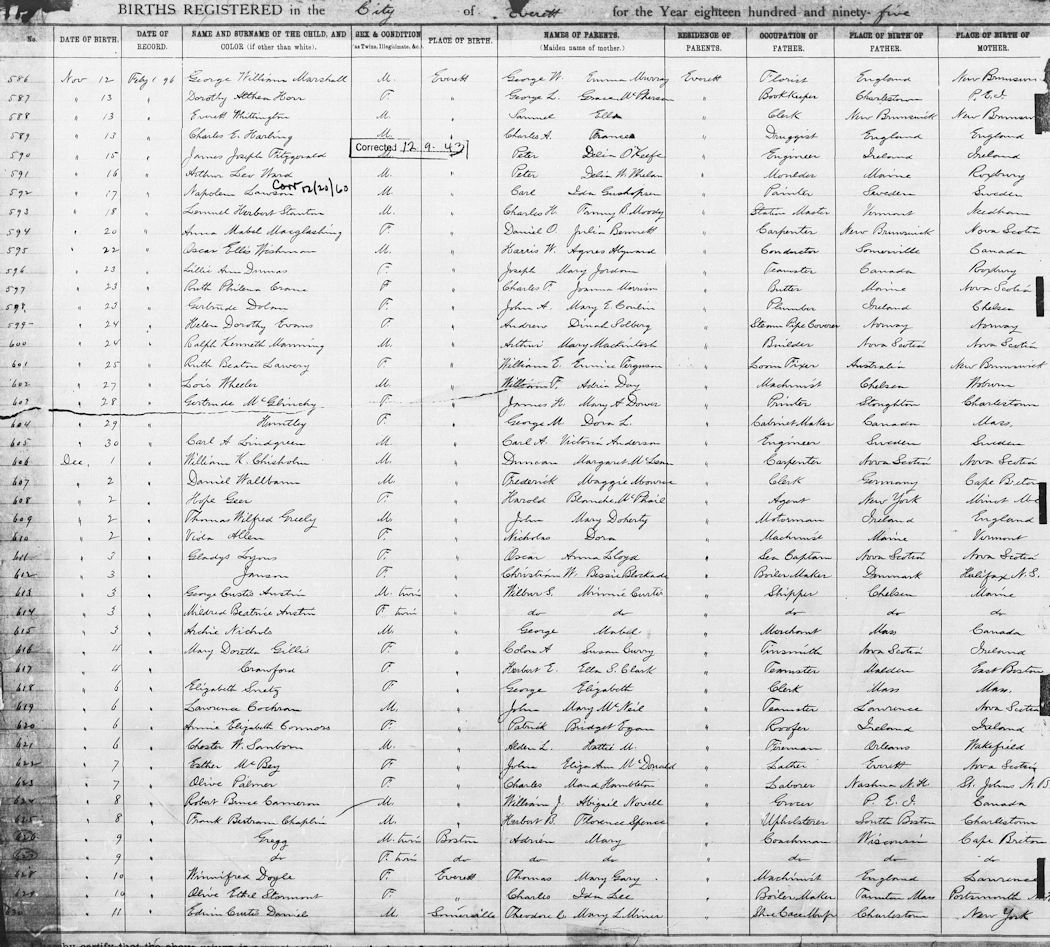 BIRTHS REGISTERED in the City of Everett for the Year eighteen hundred and ninety-five
No. DATE OF BIRTH. DATE OF RECORD. NAME AND SURNAME OF THE CHILD, AND COLOR (if other than white). SEX & CONDITION (as Twins, Illegitimate, &c.) PLACE OF BIRTH. NAMES OF PARENTS. (Maiden name of mother.) RESIDENCE OF PARENTS. OCCUPATION OF FATHER. PLACE OF BIRTH OF FATHER. PLACE OF BIRTH OF MOTHER.
586 Nov 12 Feby 1 96 George William Marshall M. Everett George W. Emma Murray Everett Florist England New Brunswi
587 " 13 " Dorothy Horr F. " George L. Grace McPherson " BookKeeper Charlestown P.E.I
588 " 13 " Everett Whittington M. " Samuel Ella " Clerk New Brunswick New Brunsw
589 " 13 " Charles E. Harbing M. " Charles A. Frances " Druggist England England
Corrected 12.9.43
590 " 15 " James Joseph Fitzgerald M. " Peter Delia O'Keefe " Engineer Ireland Ireland
591 " 16 " Arthur Leo Ward M. " Peter Delia W. Whelan " Moulder Maine Roxbury
Corr 12/20/60
592 " 17 " Napoleon Lawson M. " Carl Ida " Painter Sweden Sweden
593 " 18 " Lemuel Herbert Stanton M. " Charles H. Fanny B. Moody " Station Master Vermont Needham
594 " 20 " Anna Mabel Macglashing F. " Daniel O. Julia Bennett " Carpenter New Brunswick Nova Scotia
595 " 22 " Oscar Ellis Wishman M. " Harris W. Agnes " Conductor Somerville Canada
596 " 23 " Lillie Ann Dumas F. " Joseph Mary Jordan " Teamster Canada Roxbury
597 " 23 " Ruth Philena Crane F. " Charles F. Joanna Morrison " Butter Maine Nova Scotia
598 " 23 " Gertrude Dolan F. " John A. Mary E. Conlin " Plumber Ireland Chelsea
599 " 24 " Helen Dorothy Evans F. " Andrew Dinah Solberg " Steam Pipe Coverer Norway Norway
600 " 24 " Ralph Kenneth Manning M. " Arthur Mary Mackintosh " Builder Nova Scotia Nova Scotia
601 " 25 " Ruth Beaton Lawery F. " William E. Eunice Ferguson " Loom Fixer Australia New Brunswick
602 " 27 " Lois Wheeler M. " William F. Adria Day " Machinist Chelsea Woburn
603 " 28 " Gertrude McGlinchy F. " James H. Mary A Dower " Printer Stoughton Charlestown
604 " 29 " Huntley F. " George M. Dora L. " Cabinet Maker Canada Mass.
605 " 30 " Carl A Lindgreen M. " Carl A. Victoria Anderson " Engineer Sweden Sweden
606 Dec. 1 " William K. Chisholm M. " Duncan Margaret McLean " Carpenter Nova Scotia Nova Scotia
607 " 2 " Daniel Wallbann M. " Frederick Maggie Monroe " Clerk Germany Cape Breton
608 " 2 " Hope Geer F. " Harold Blanche McPhail " Agent New York Minot Me
609 " 2 " Thomas Wilfred Greely M. " John Mary Doherty " Motorman Ireland England
610 " 2 " Vida Allen F. " Nicholas Dora " Machinist Maine Vermont
611 " 3 " Gladys Lyons F. " Oscar Anna Lloyd " Sea Captain Nova Scotia Nova Scotia
612 " 3 " Janson F. " Christian W. Bessie Blockade " Boiler Maker Denmark Halifax N.S.
613 " 3 " George Curtis Austin M. twin " Wilbur S. Minnie Curtis " Shipper Chelsea Maine
614 " 3 " Mildred Beatrice Austin F. twin " do do " do do do
615 " 3 " Archie Nichols M. " George Mabel " Merchant Mass Canada
616 " 4 " Mary Doretta Gillis F. " Colon A Susan Curry " Tinsmith Nova Scotia Ireland
617 " 4 " Crawford F. " Herbert E. Ella S. Clark " Teamster Malden East Boston
618 " 6 " Elizabeth F. " George Elizabeth " Clerk Mass Mass.
619 " 6 " Lawrence Cochran M. " John Mary McNeil " Teamster Lawrence Nova Scotia
620 " 6 " Annie Elizabeth Connors F. " Patrick Bridget Egan " Roofer Ireland Ireland
621 " 6 " Chester W. Sanborn M. " Alden L. Hattie M. " Fireman Orleans Wakefield
622 " 7 " Esther McBey F. " John Eliza Ann McDonald " Lather Everett Nova Scotia
623 " 7 " Olive Palmer F. " Charles Maud Hambleton " Laborer Nashua N.H. St. Johns N.B
624 " 8 " Robert Bruce Cameron M. " William J. Abigail Novell " Grocer P.E.I. Canada
625 " 8 " Frank Bertram Chaplin M. " Herbert B. Florence Spence " Upholsterer South Boston Charlestown
626 " 9 Gregg M. twin Boston Adrien Mary " Coachman Wisconsin Cape Breton
627 " 9 " do F. twin do do do " do do do
628 " 10 " Winnifred Doyle F. Everett Thomas Mary Gary " Machinist England Lawrence
629 " 10 " Olive Ethel Stormont F. " Charles Ida Lee " Boiler Maker Taunton Mass Portsmouth
630 " 11 " Edwin Curtis Daniels M. Somerville Theodore C. Mary L. Miner " Charlestown New York